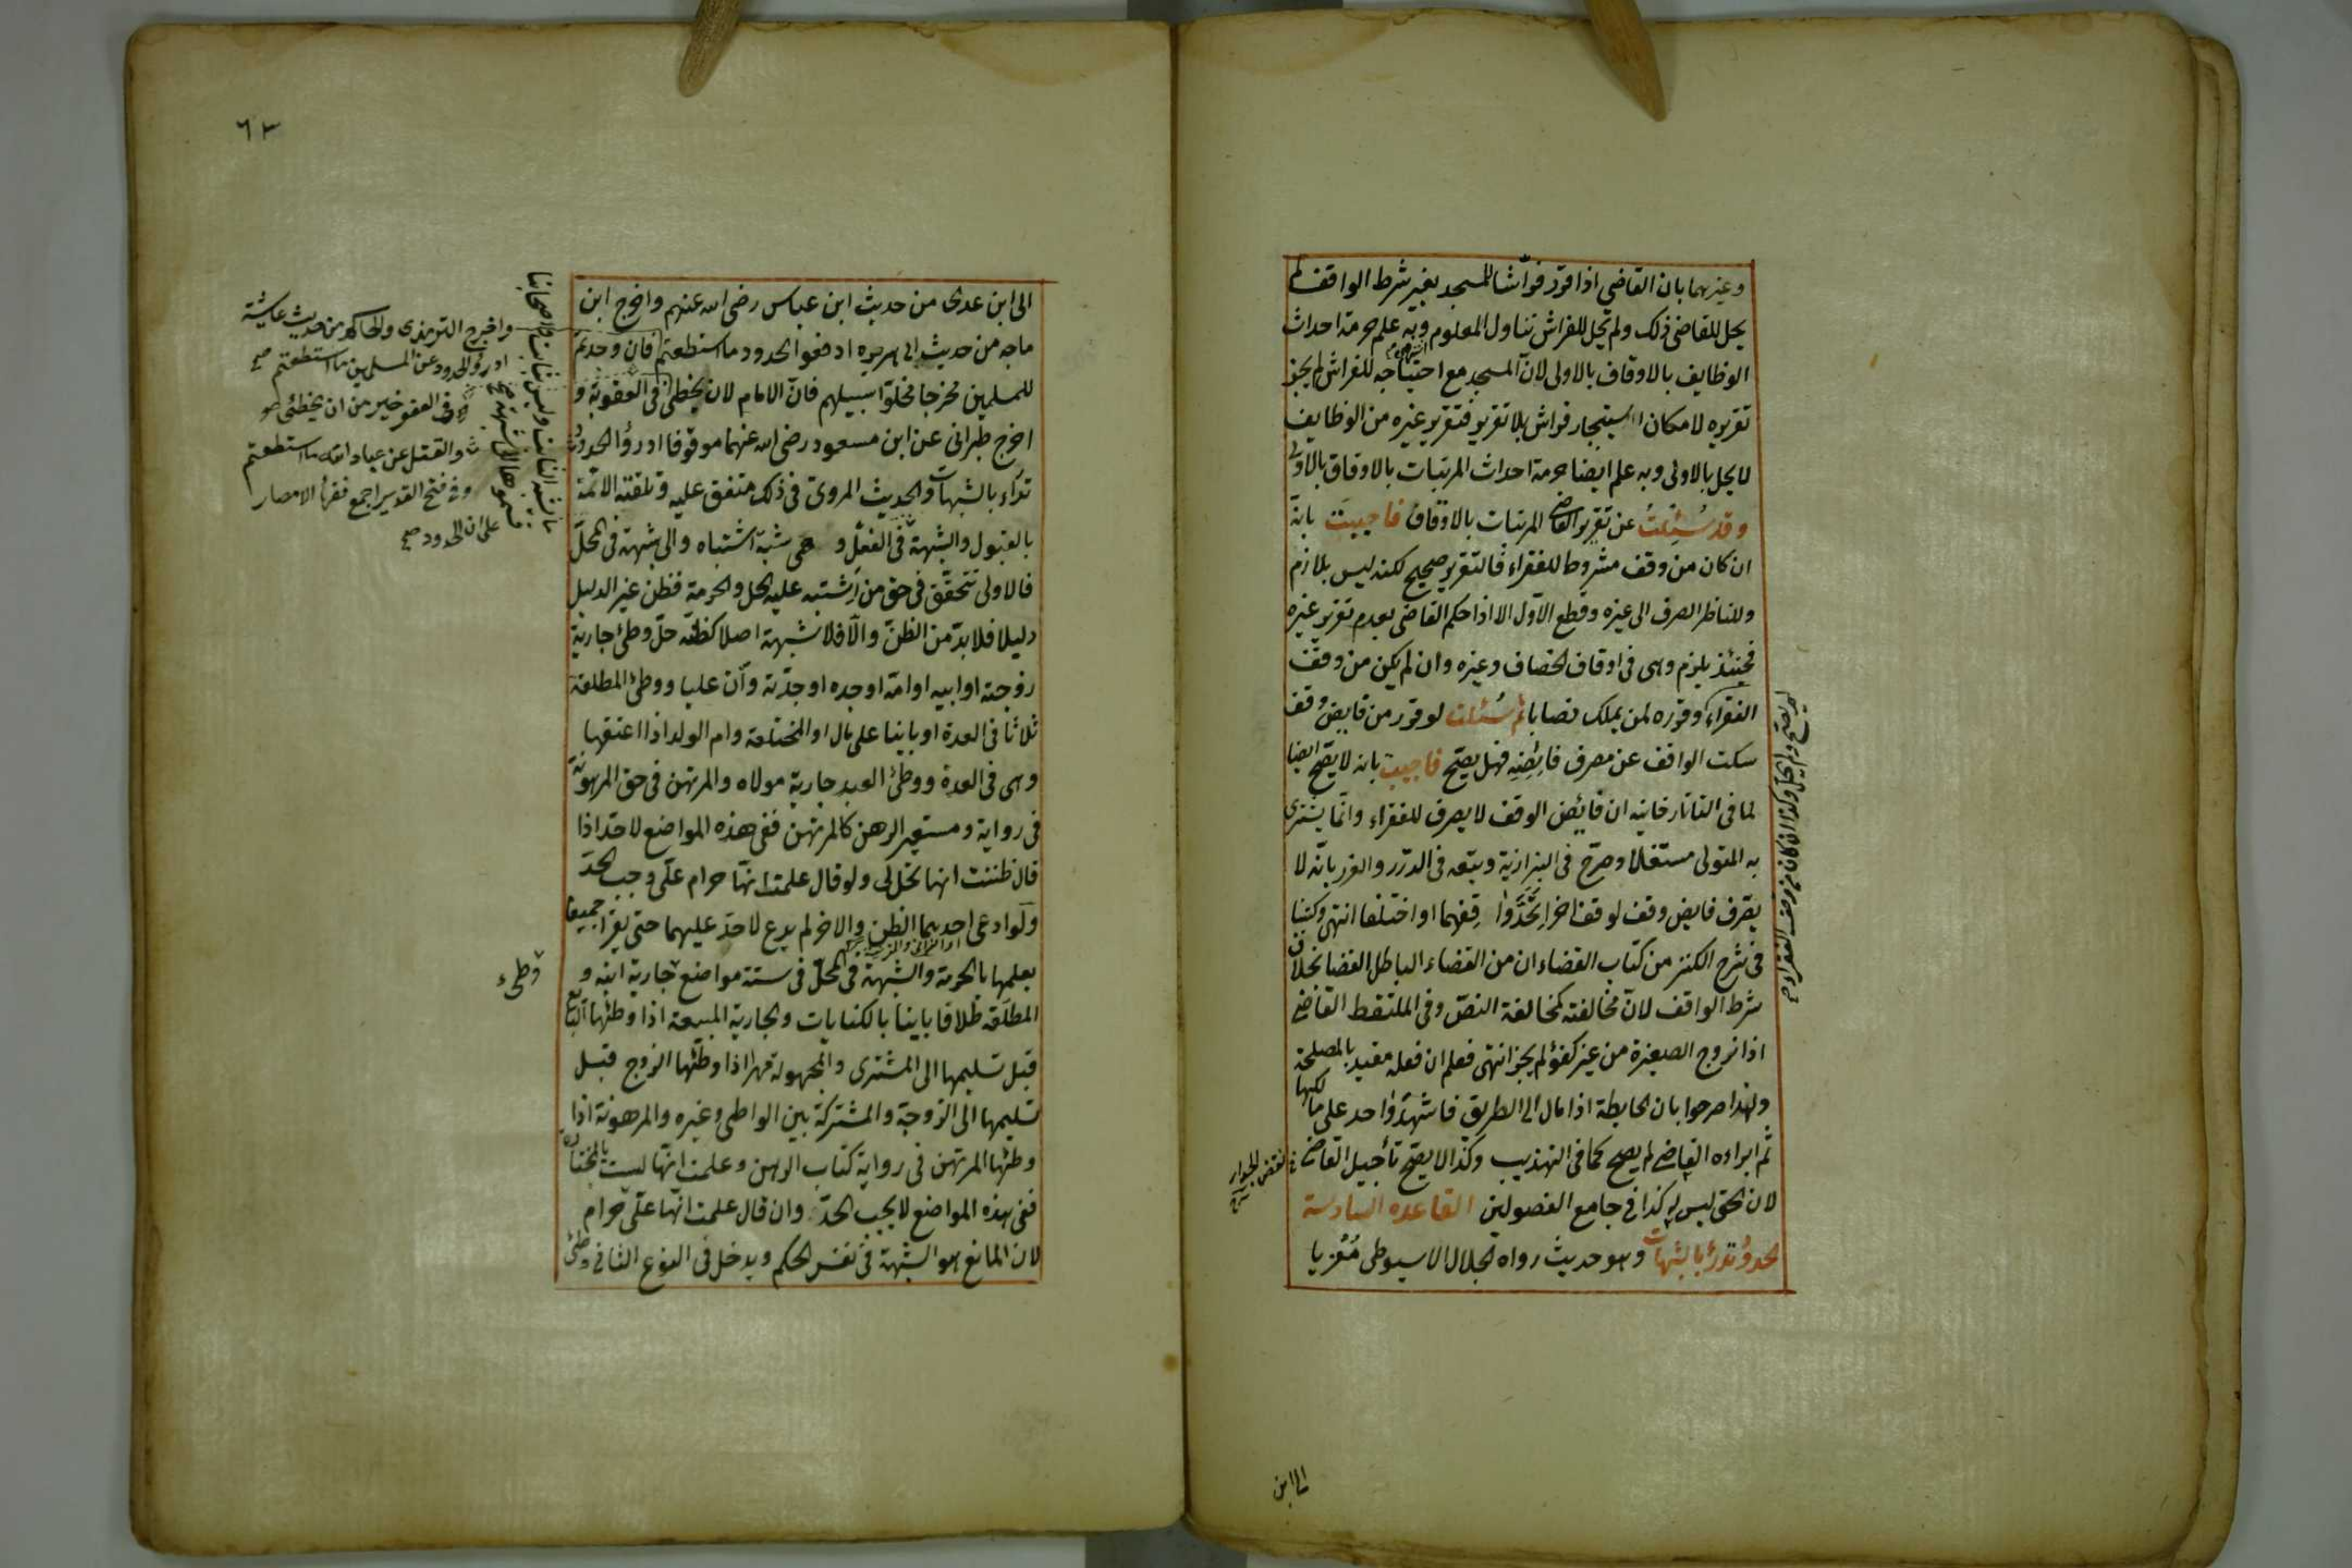 وغيرهما بان القاضي اذا قرر فراشا للمسجد بغير شرط الواقف لم
يحل للقاضى ذلك ولم يحل للفراش تناول المعلوم وبه علم حرمة احداث
الوظايف بالاوقاف بالاولى لان المسجد مع احتياجه للفراش لم يجز
تقريره لامكان استيجار فراش بلا تقرير فتقرير غيره من الوظايف
لا يحل بالاولى وبه علم ايضا حرمة احداث المرتبات بالاوقاف بالاولى
وقد سُئِلتُ عن تقرير القاضى المرتبات بالاوقاف فاجيبت بانه
ان كان من وقف مشروط للفقراء فالتقرير صحيح لكنه ليس بلازم
وللناظر الصرف الى غيره وقطع الاول الا اذا حكم القاضى بعدم تقرير غيره
فحينئذ يلزم وهى فى اوقاف الخصاف وغيره وان لم يكن من وقف
الفقراء وقرره لمن يملك نصابا ثم سُئلت لو قرر من فايض وقف
سكت الواقف عن مصرف فايضه فهل يصح فاجيب بانه لا يصح ايضا
لما فى التاتارخانيه ان فائض الوقف لا يصرف للفقراء وانما يشترى
به المتولى مستغلا وصرح فى البزازية وتبعه فى الدرر والغرر بانه لا
يصرف فايض وقف لوقف اخر اتحدوا قفهما او اختلفا انتهى وكتبنا
فى شرح الكنز من كتاب القضاء ان من القضاء الباطل القضا بخلاف
شرط الواقف لان مخالفته كمخالفة النص وفى الملتقط القاضى
اذا زوج الصغيرة من غير كفؤ لم يجز انتهى فعلم ان فعله مقيد بالمصلحة
ولهذا صرحوا بان الحايطة اذا مال الى الطريق فاشهد واحد على مالكها
ثم ابراءه القاضى لم يصح كما فى التهذيب وكذا لا يصح تأجيل القاضى
لان الحق ليس له كذا فى جامع الفصولين القاعده السادسة
الحدودُ تدرأ بالشبهات وهو حديث رواه الجلال الاسيوطى مُعْزيا
الى ابن
٦٣
الى ابن عدى من حديث ابن عباس رضى الله عنهم واخرج ابن
ماجه من حديث ابى هريره ادفعوا الحدود ما استطعتم فان وجدتم
للمسلمين مخرجا فخلوا سبيلهم فان الامام لان يخطى فى العقوبة و
اخرج طبرانى عن ابن مسعود رضى الله عنهما موقوفا ادرؤا الحدود
تدراء بالشبهات والحديث المروى فى ذلك متفق عليه وتلقته الائمة
بالقبول والشبهة فى الفعل و هى شبهة اشتباه والى شبهة فى المحل
فالاولى تتحقق فى حق من اشتبه عليه الحل والحرمة فظن غير الدليل
دليلا فلا بد من الظن والا فلا شبهة اصلا كظنه حل وطئ جارية
زوجته او ابيه او امه او جده او جدته وان عليا ووطئ المطلقة
ثلاثا فى العدة او باينا على مال او المختلعة وام الولد اذا اعتقها
وهى فى العدة ووطئ العبد جارية مولاه والمرتهن فى حق المرهونة
فى رواية ومستعير الرهن كالمرتهن ففى هذه المواضع لا حد اذا
قال ظننت انها تحل لى ولو قال علمت انها حرام على وجب الحد
ولو ادعى احدهما الظن والاخر لم يدع لا حد عليهما حتى يقرا جميعا
بعلمها بالحرمة والشبهة فى المحل فى ستة مواضع جارية ابنه و
المطلقه طلاقا باينا بالكنايات والجارية المبيعة اذا وطئها البايع
قبل تسليمها الى المشترى والمجهولة مهرا اذا وطئها الزوج قبل
تسليمها الى الزوجة والمشتركة بين الواطى وغيره والمرهونة اذا
وطئها المرتهن فى رواية كتاب الرهن وعلمت انها ليست بالمختارة
ففى هذه المواضع لا يجب الحد وان قال علمت انها على حرام
لان المانع هو الشبهة فى نفس الحكم ويدخل فى النوع الثانى وطئ
واخرج الترمذى والحاكم من حديث عايشة
ادرؤا الحدود عن المسلمين ما استطعتم صح
فى العفو خير من ان يخطئ
والقتل عن عباد الله ما استطعتم
وفى فتح القدير اجمع فقهاء الامصار
على ان الحدود صح
وطىء